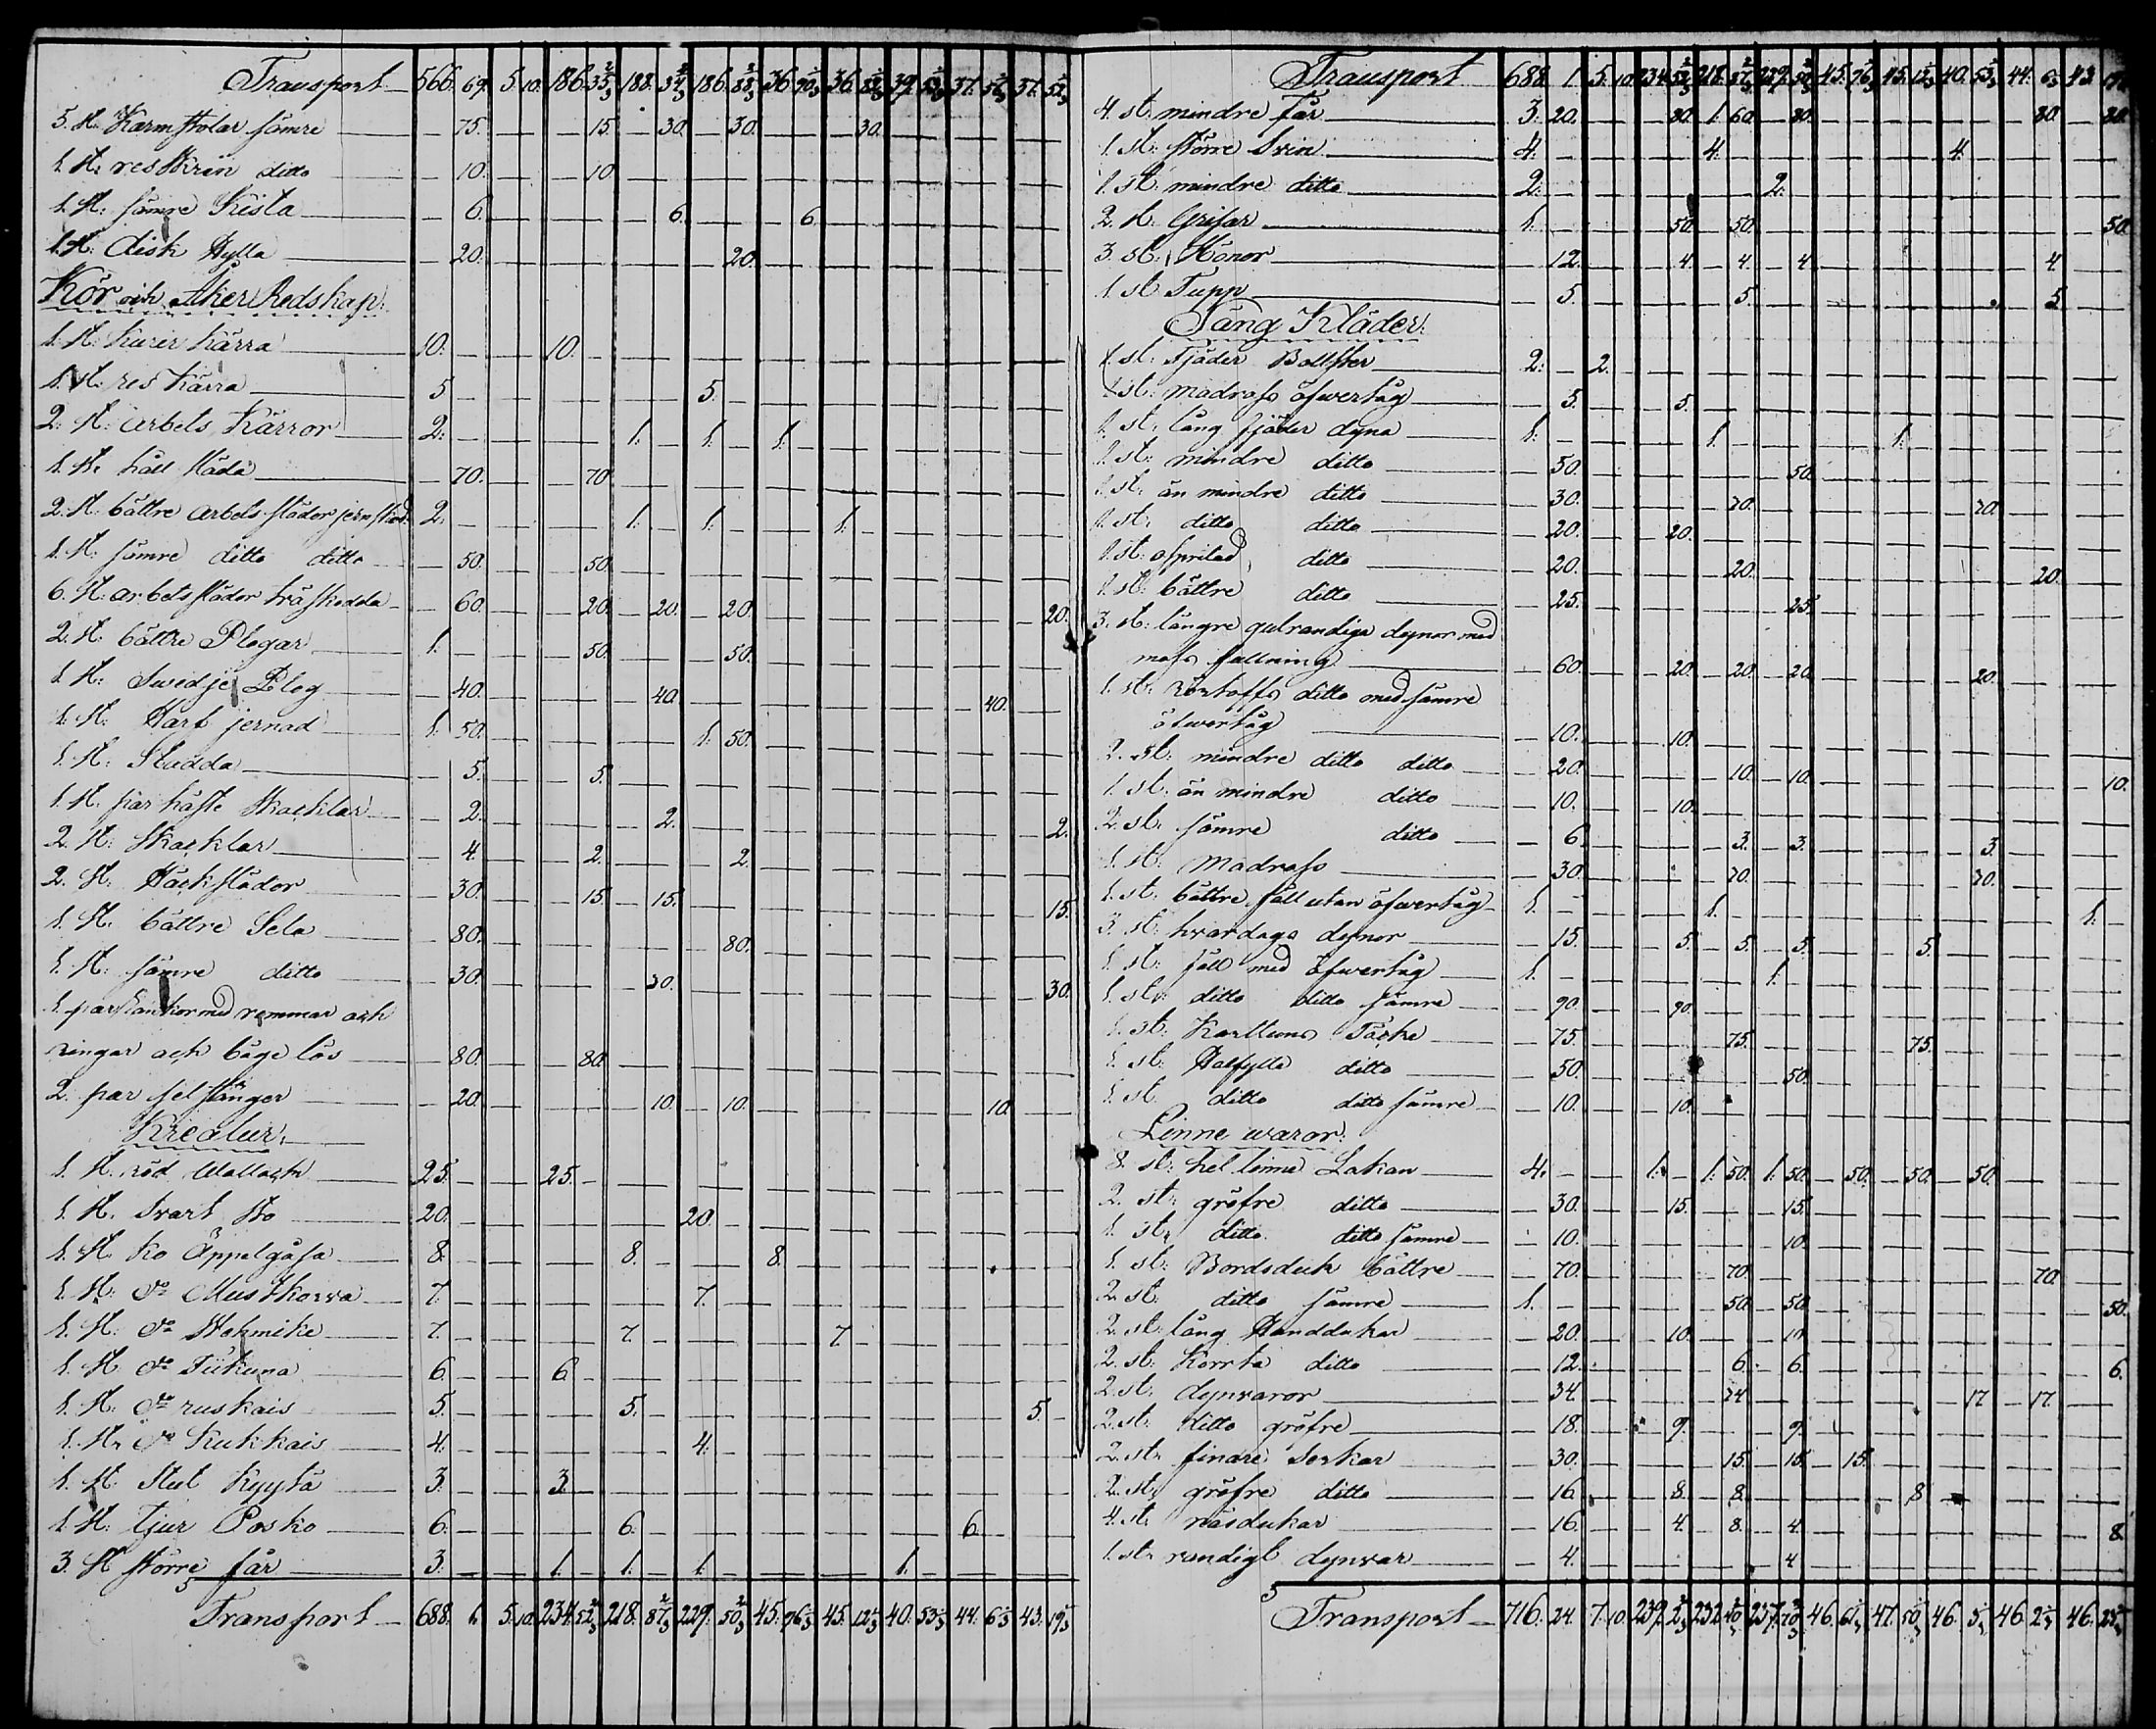 Transport 566. 69. 5. 10. 186. 33 2/3 188. 34 2/3 186. 88 2/3 36. 36. 39. 37. 37.
5. st. Karmstolar sämre — 75. — 15. — 30. — 30. — 30.
1. st. resskrin ditto — 10. — 10
1. st: sämre Kista — 6. — 6. — 6.
1. st: disk Hylla — 20. — 20.
Kör och Åker Redskap.
1. st: kurir kärra 10. — 10. —
1. st: res kärra 5 — 5. —
2. st: arbets Kärror 2. — 1. — 1. — 1. —
1. st: håll släda — 70. — 70
2. st. bättre arbets slädor jernskod. 2. — 1. — 1. — 1. —
1. st: sämre ditto ditto — 50. — 50.
6. st: arbets slädor träskodda — 60. — 20. — 20. — 20. — 20.
2. st. bättre Plogar 1. — 50. — 50.
1. st: Swedje Plog — 40. — 40. — 40.
1. st: Harf jernad 1. 50. — 1. 50.
1. st: Sladda — 5. — 5.
1. st. par häste Skacklar — 2. — 2. — 2.
2. st: Skacklar — 4. — 2. — 2.
2. st. Häckslädor — 30. — 15. — 15. — 15.
1. st. bättre Sela — 80. — 80.
1. st: sämre ditto — 30. — 30. — 30.
1. par rankor med remmar och
ringar och båge lös — 80. — 80.
2. par sel stänger — 20. — 10. — 10. — 10.
Kreatur.
1. st. röd Wallack 25. — 25. —
1. st. svart Sto 20. — 20.
1. st. Ko Äppelgåsa 8. — 8. — 8.
1. st: do Mustkorva 7. — 7.
1. st: do Hakmike 7. — 7. — 7
1. st do Tiikuna 6. — 6.
1. st: do ruskais 5. — 5. — 5. —
1. st. do Kukkais 4. — 4.
1. st. Stut Kyytä 3. — 3.
1. st: tjur Posko 6. — 6. — 6.
3. st större får 3. — 1. — 1. — 1. — 1.
Transport 688. 1. 5. 10. 234. 52 2/3 218. 87 2/3 229. 50 2/3 45. 76 2/3 45. 12 2/3 40. 53 2/3 44. 6 2/3 43. 19 2/3
Transport 688. 1. 5. 10. 234. 52 2/3 218. 87 2/3 229. 50 2/3 45. 76 2/3 45. 12 2/3 40. 53 2/3 44. 6 2/3 43.
4. st: mindre Får 3. 20. — 80. 1. 60. — 80. — 80. — 80.
1. st: större Svin 4. — 4. — 4.
1. st: mindre ditto 2. — 2.
2. st. Grisar 1. — 50. — 50. — 50.
3. st. Hönor — 12. — 4. — 4. — 4. — 4
1. st Tupp — 5. — 5. — 5.
Säng Kläder.
1. st: Fjäder Bollster 2. — 2.
1. st: madrass öfwertåg — 5. — 5.
1. st: lång fjäder dyna 1. — 1. — 1.
1. st: mindre ditto — 50. — 50.
1. st: än mindre ditto — 30. — 30. — 30.
1. st: ditto ditto — 20. — 20.
1. st: ditto — 20. — 20. — 20.
1. st: bättre ditto — 25. — 25.
3. st: längre gulrandiga dynor med
moss fallning — 60. — 20. — 20. — 20. — 20.
1. st: ditto med sämre
öfwertåg — 10. — 10.
2. st. mindre ditto ditto — 20. — 10. — 10. — 10.
1. st: än mindre ditto — 10. — 10.
2. st. sämre ditto — 6. — 3. — 3. — 3.
1. st: Madrass — 30. — 30. — 30.
1. st. bättre fäll utan öfwertåg 1. — 1. — 1.
3. st: hvardags dynor — 15. — 5. — 5. — 5. — 5.
1. st: fäll med öfwertåg 1. — 1.
1. st: ditto ditto sämre — 90. — 90.
1. st: Karttuns Täcke — 75. — 75. — 75.
1. st. Halfylle ditto — 50. — 50.
1. st. ditto ditto sämre — 10. — 10.
Linne waror.
8. st: hel linne Lakan 4. — 1. — 1. 50. 1. 50. — 50. — 50. — 50.
2. st: gröfre ditto — 30. — 15. — 15.
1. st. ditto ditto sämre — 10. — 10.
1. st: Bordsduk bättre — 70. — 70. — 70.
2. st: ditto sämre 1. — 50. — 50. — 50.
2. st: lång Handdukar — 20. — 10. — 10.
2. st: Korrta ditto — 12. — 6. — 6. — 6.
2. st: dynvaror — 34. — 34. — 17. — 17.
2. st: ditto gröfre — 18. — 9. — 9.
2. st: finare serkar — 30. — 15. — 15. — 15.
2. st: gröfre ditto — 16. — 8. — 8. — 8
4. st: näsdukar — 16. — 4. — 8. — 4. — 8.
1. st: randigt dynvar — 4. — 4
Transport 716. 24. 7. 10. 239. 232. 237. 46. 47. 46. 46. 46.